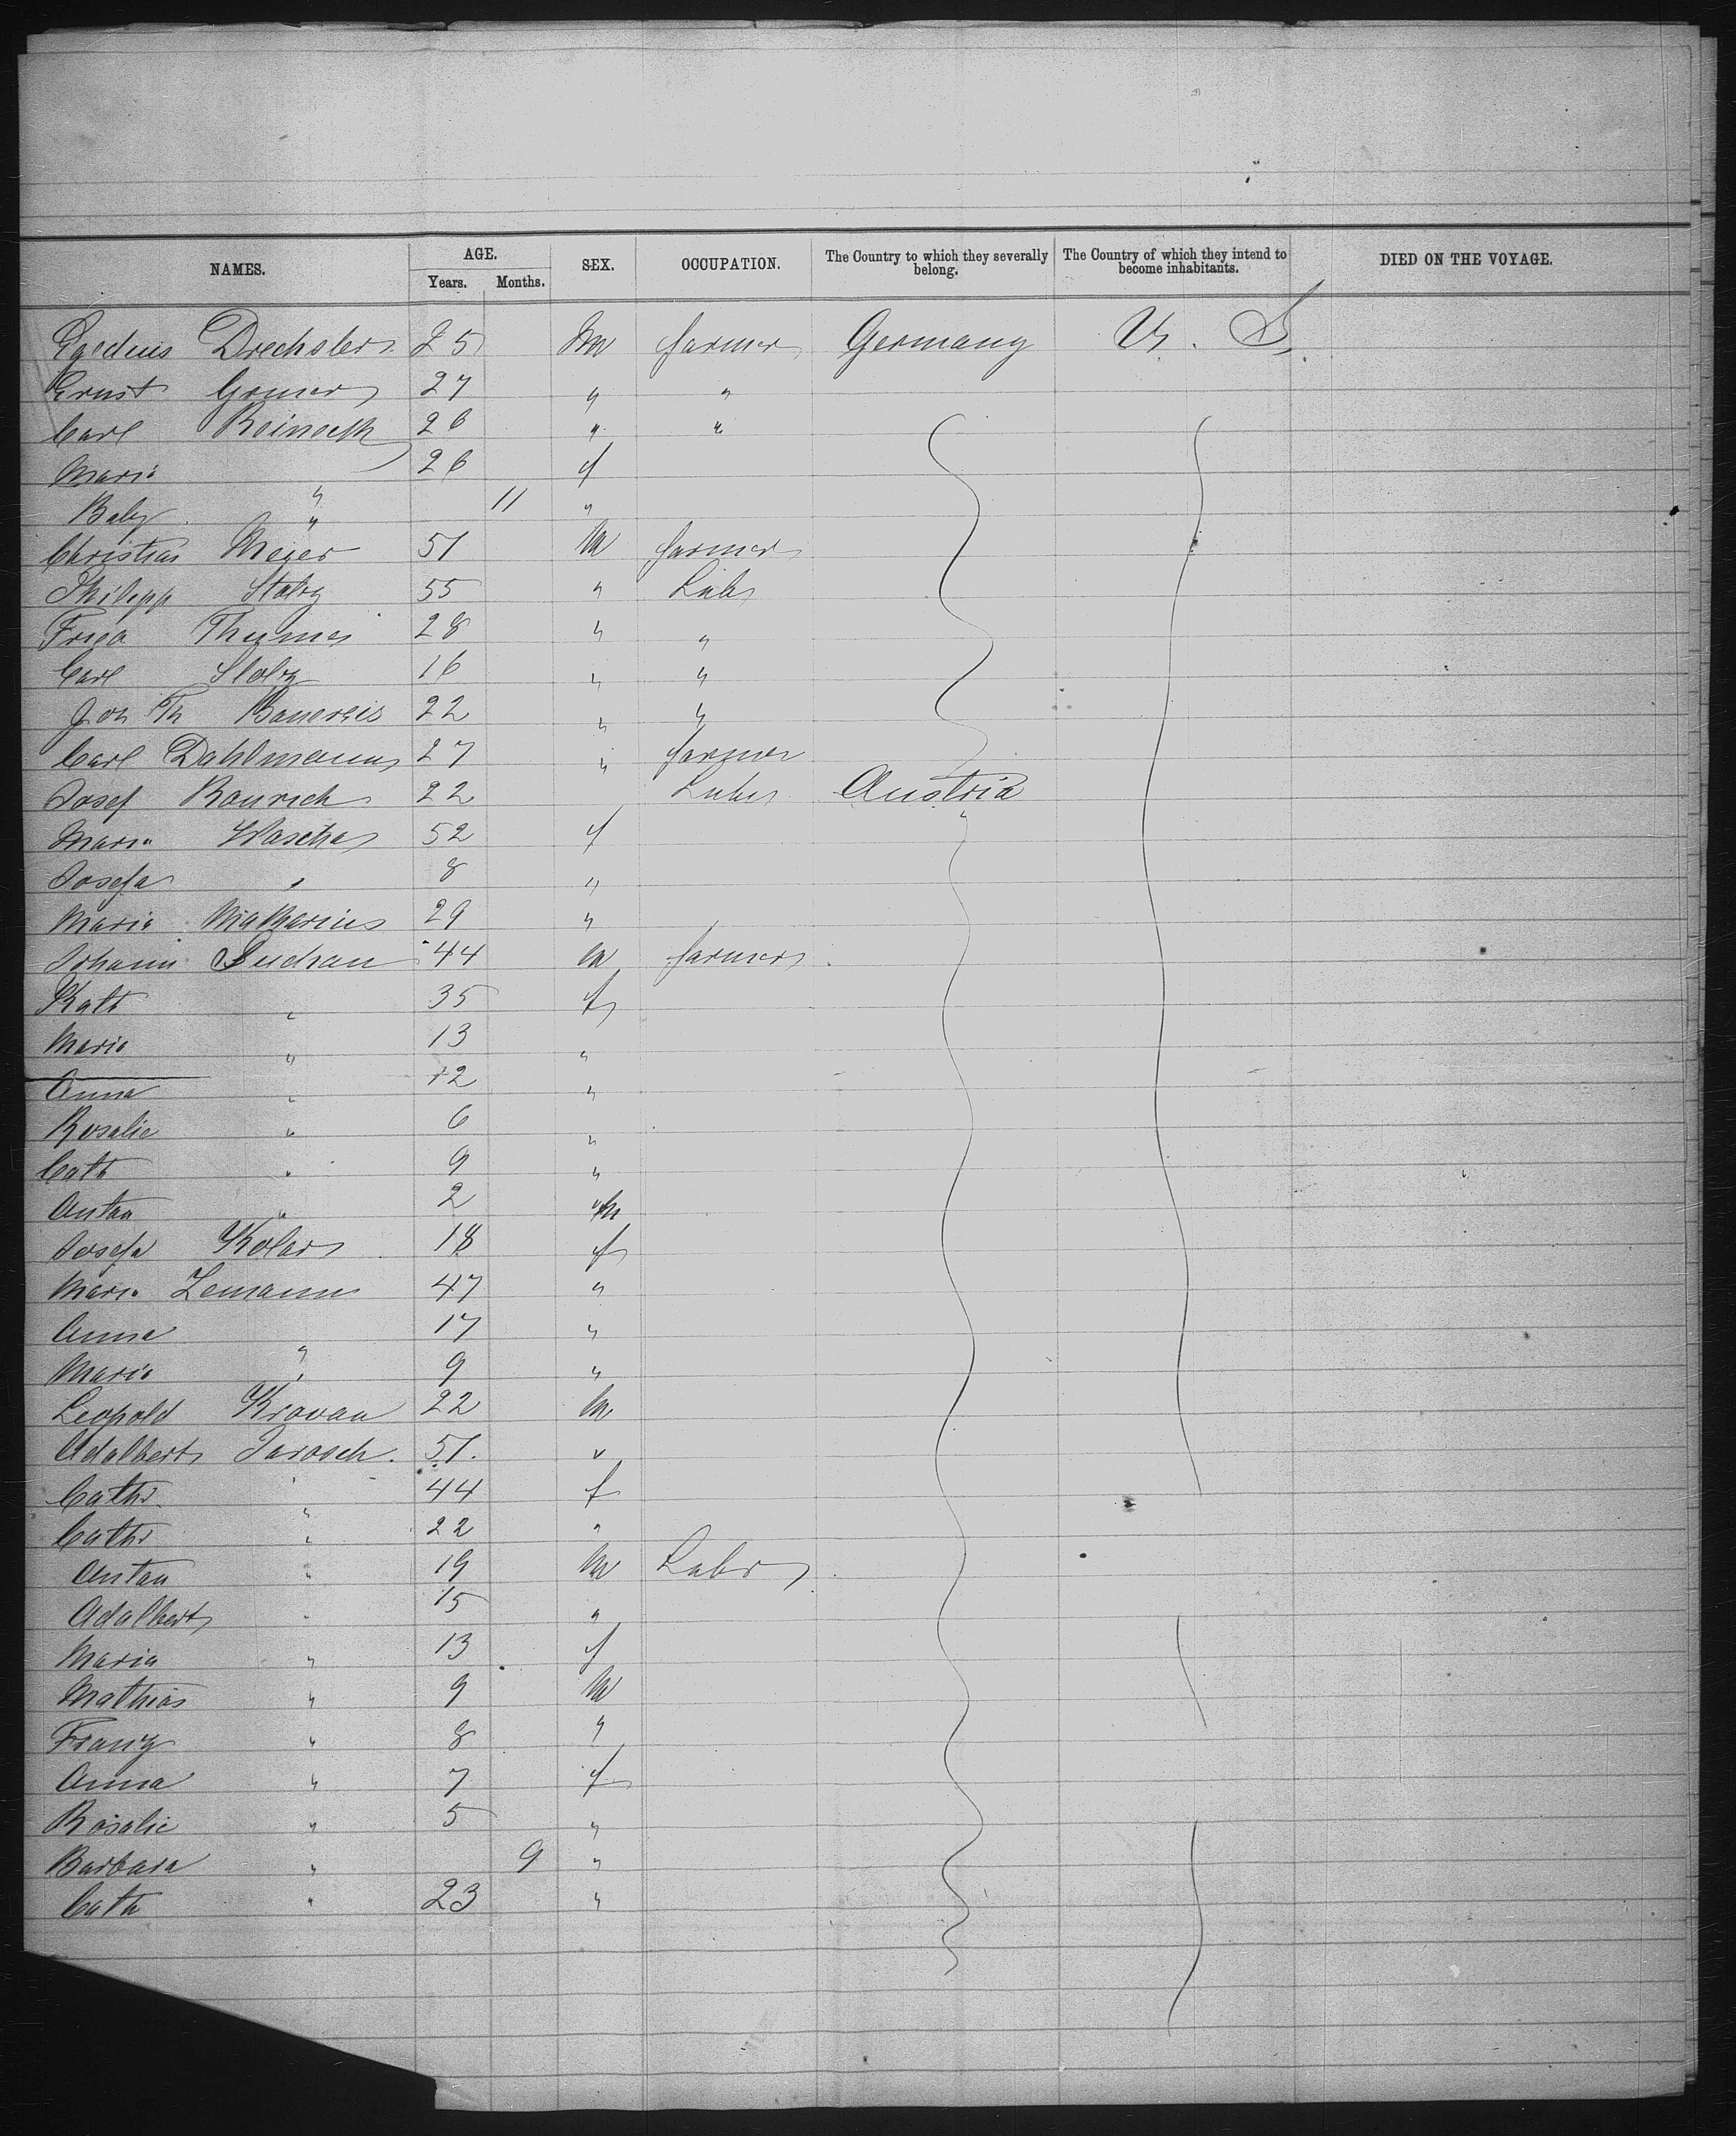 NAMES. AGE. SEX. OCCUPATION. The Country to which they severally belong. The Country of which they intend to become inhabitants. DIED ON THE VOYAGE.
Years. Months.
Egedius Drechsler 25 M farmer Germany U. S.
Ernst 27 " "
Carl 26 " "
Maria " 26 f
Baby " 11 "
Christian Meyer 51 M farmer
Philipp Stolz 55 " Labr
28 " "
Carl Stolz 16 " "
Joh Th 22 " "
Carl Dahlmann 27 " farmer
Josef 22 Labr Austria
Maria 52 f "
Josefa " 8 "
Maria 29 "
Johann 44 m farmer
Kath " 35 f
Maria " 13 "
Anna " 12 "
Rosalie " 6 "
Cath " 9 "
Anton " 2 M
Josefa Kolar 18 f
Maria Zemann 47 "
Anna " 17 "
Maria " 9 "
Leopold Kravan 22 M
Adalbert Jarosch. 51. "
Cathr " 44 f
Cathr " 22 "
Anton " 19 M Labr
Adalbert " 15 "
Maria " 13 f
Mathias " 9 M
Franz " 8 "
Anna " 7 f
Rosalie " 5 "
Barbara " 9 "
Cath " 23 "